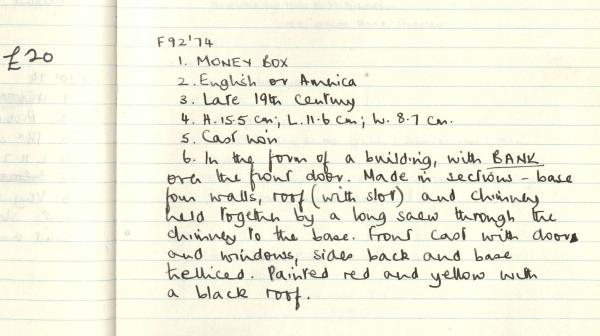 £20
F92'74
1. MONEY BOX
2. English or America
3. Late 19th Century
4. H. 15.5 cm; L. 11.6 cm; W. 8.7 cm.
5. Cast iron
6. In the form of a building, with BANK
over the front door. Made in sections - base
four walls, roof (with slot) and chimney
held together by a long screw through the
chimney to the base. Front cast with doors
and windows, sides back and base
trelliced. Painted red and yellow with
a black roof.